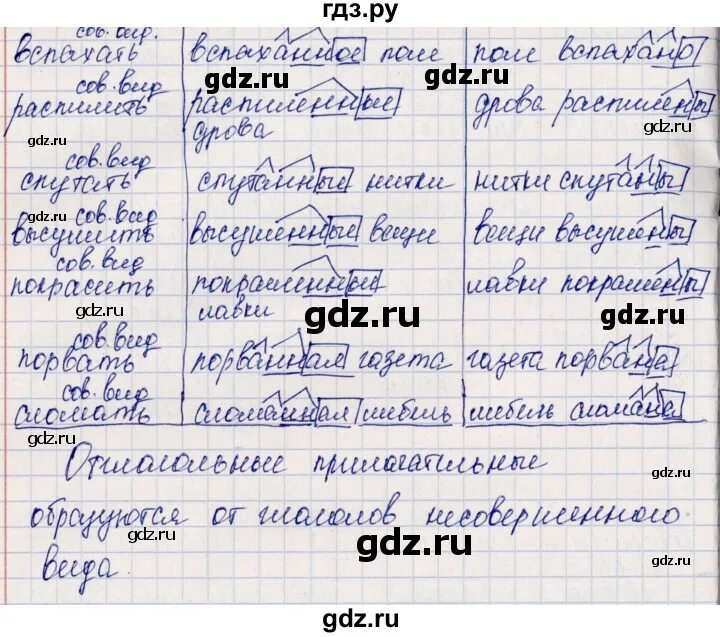 гдз.ру
сов. вид.
вспахать вспаханное поле поле вспахано
gdz.ru gdz.ru
сов. вид
распилить распиленные дрова распилены
gdz.ru дрова gdz.ru
сов. вид
спутать спутанные нитки нитки спутаны
gdz.ru сов. вид gdz.ru
высушить высушенные вещи вещи высушены
сов. вид
покрасить покрашенные лавки покрашены
gdz.ru лавки gdz.ru gdz.ru
сов. вид
порвать порванная газета газета порвана
сов. вид
сломать сломанная мебель мебель сломана
gdz.ru
Отглагольные прилагательные
gdz.ru
образуются от глаголов несовершенного
gdz.ru gdz.ru
вида.
gdz.ru
gdz.ru